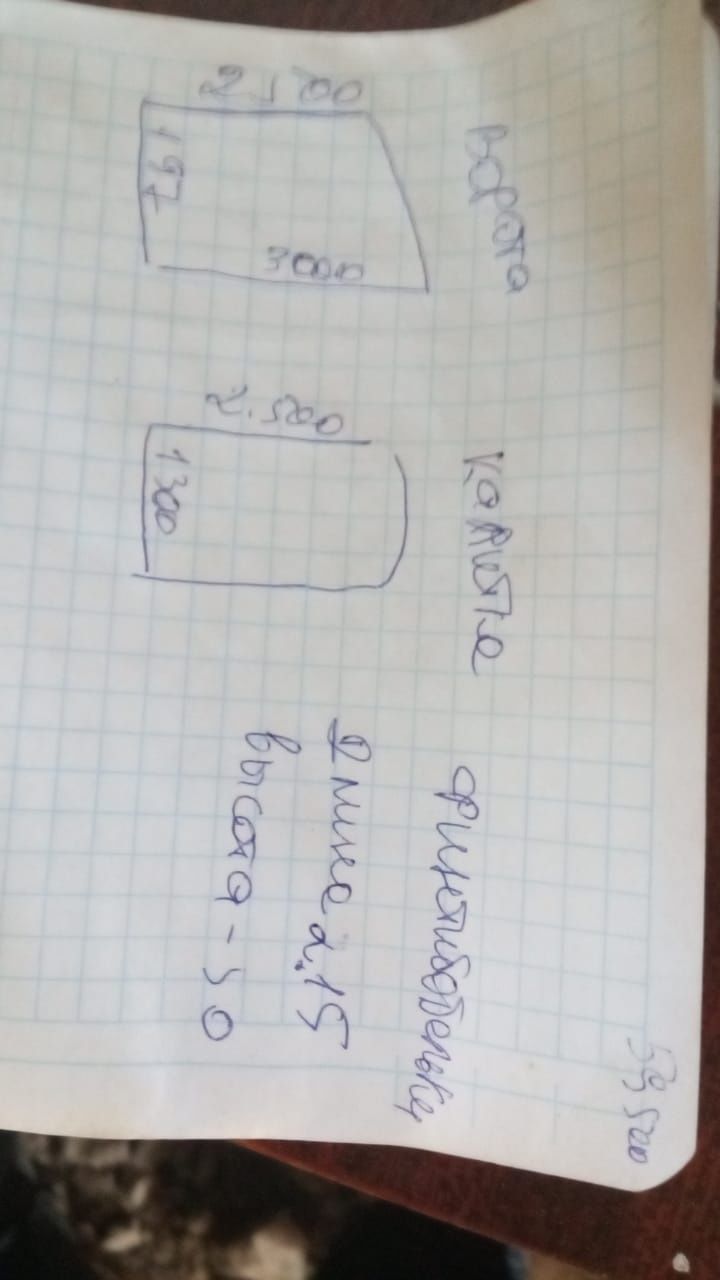 59 500
Ворота
2 500
197
3000
калитка
2.500
1300
финтибобельки
Длина 2.15
высота - 50